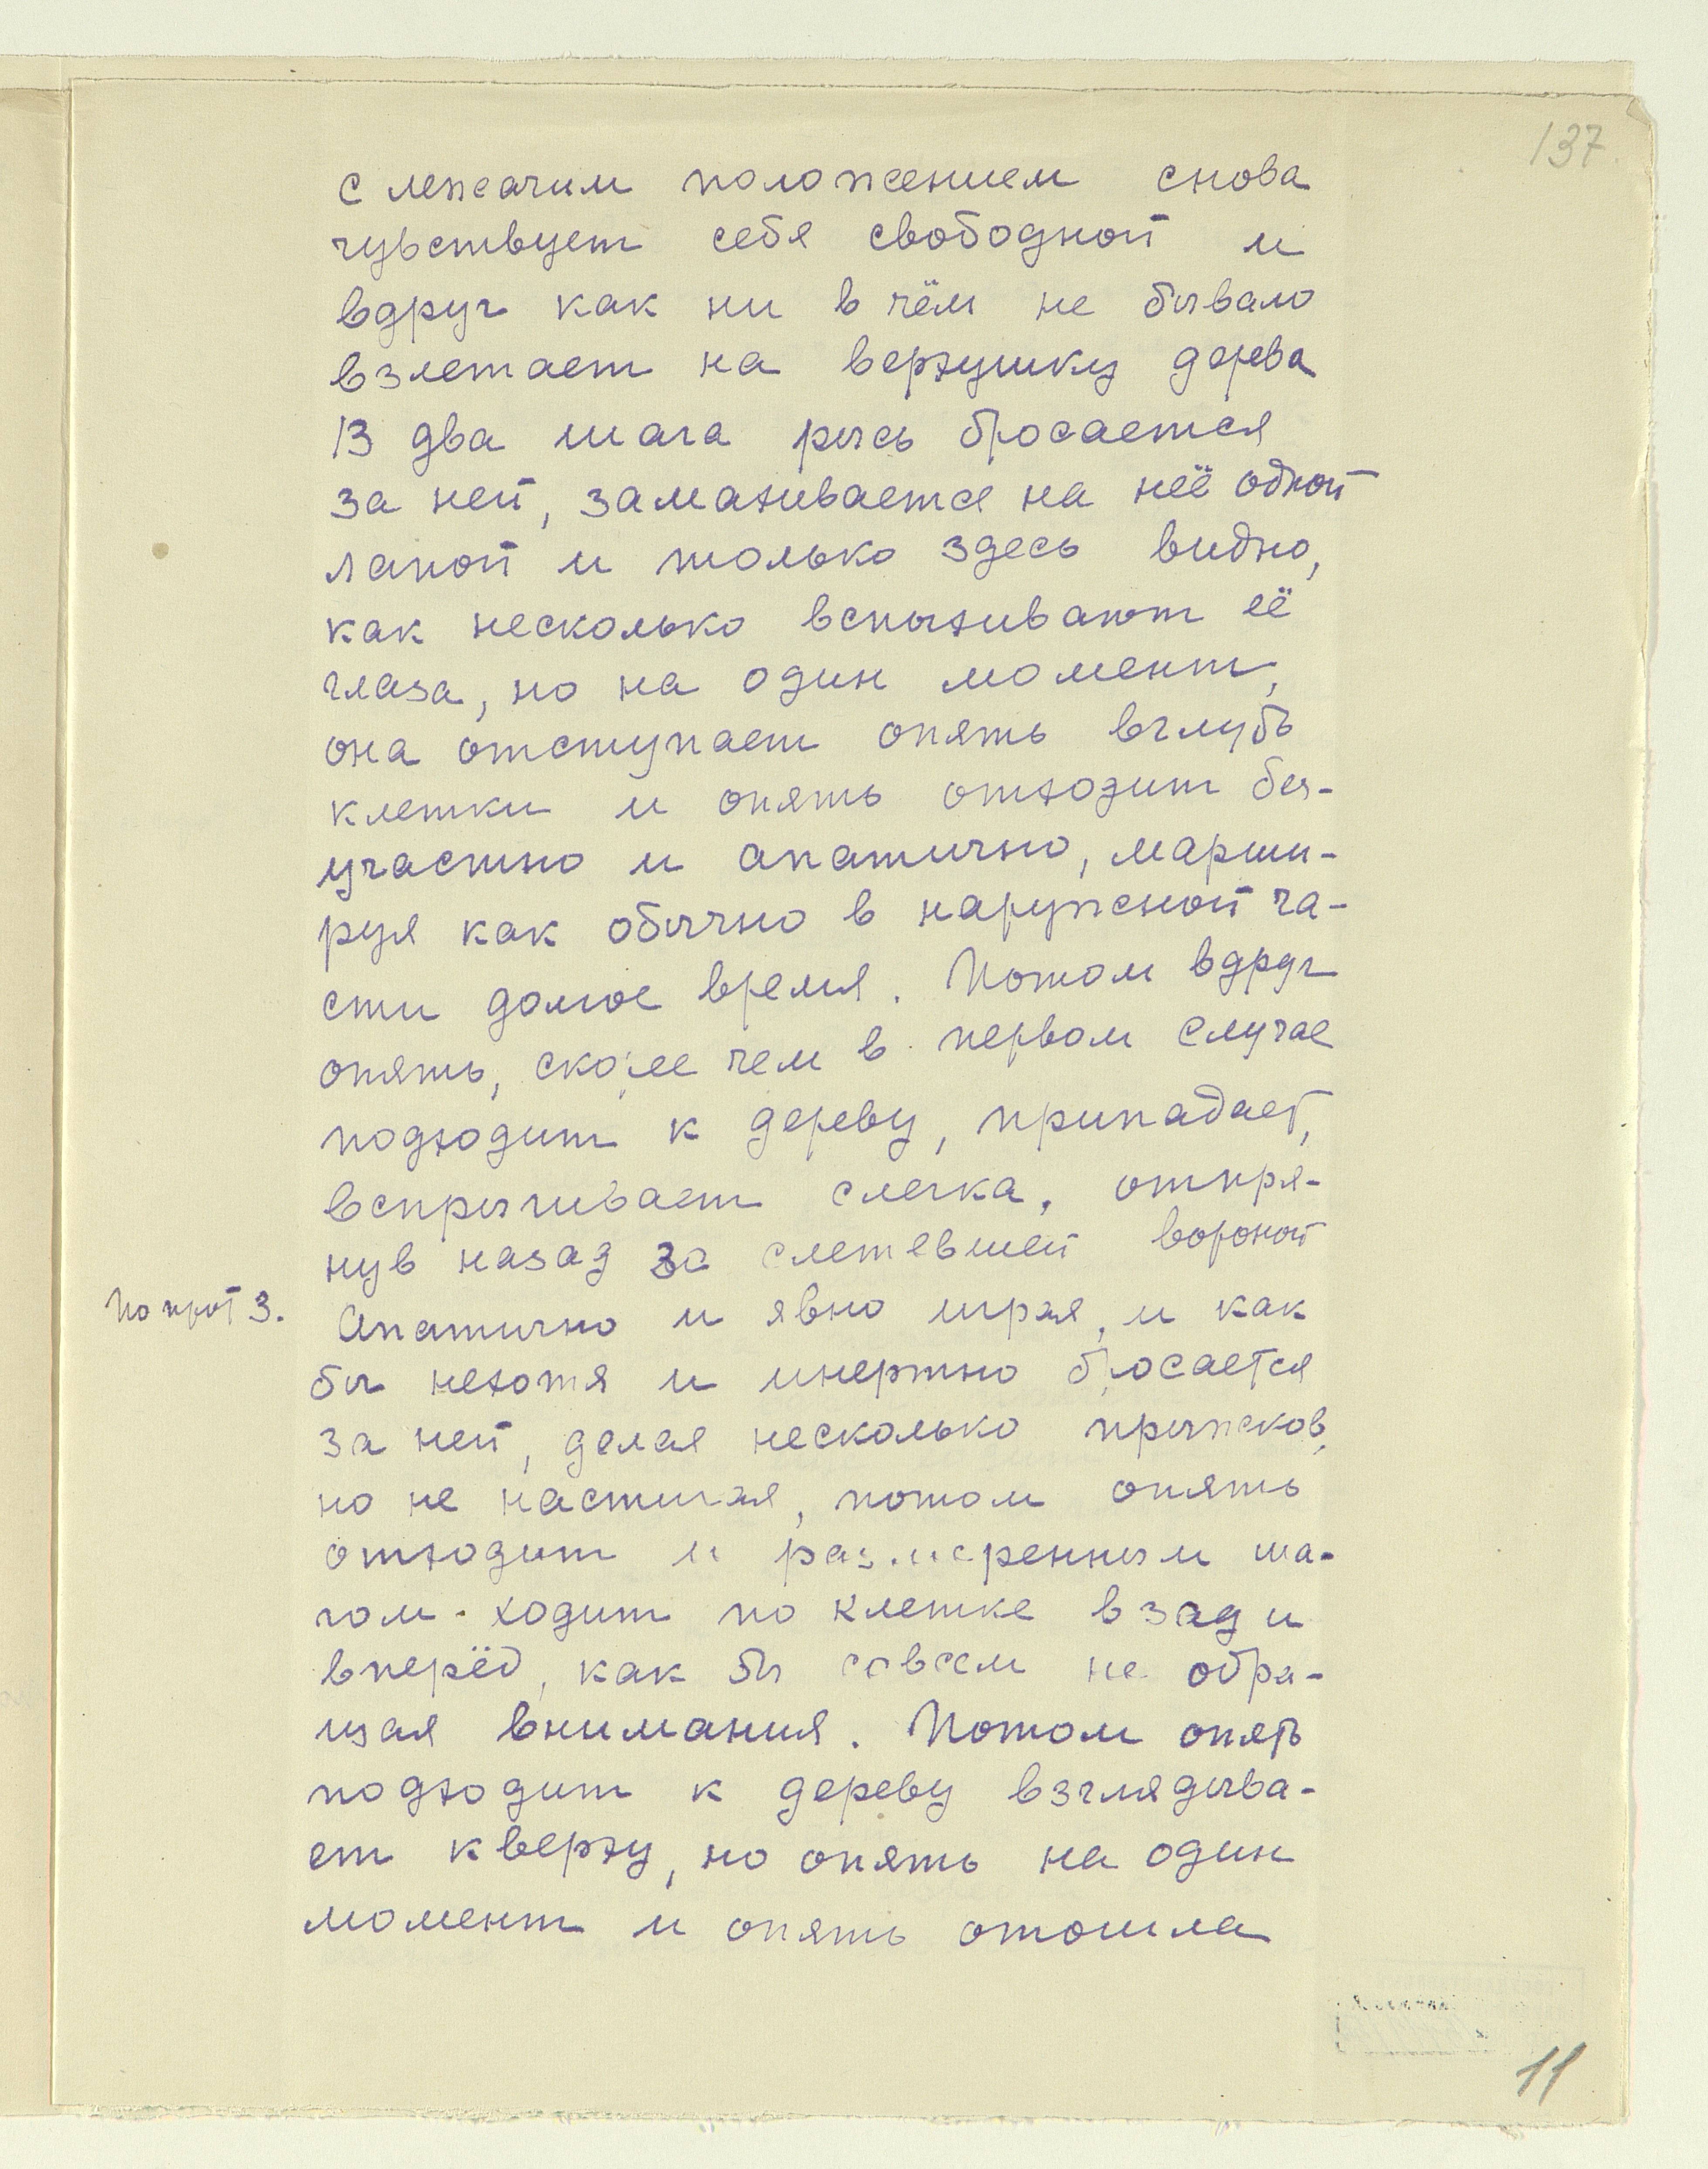 137.
с лежачим положением снова
чувствует себя свободной и
вдруг как ни в чём не бывало
взлетает на верхушку дерева
В два шага рысь бросается
за ней, замахивается на неё одной
лапой и только здесь видно,
как несколько вспыхивают её
глаза, но на один момент,
она отступает опять вглубь
клетки и опять отходит без-
участно и апатично, марши-
руя как обычно в наружной ча-
сти долгое время. Потом вдруг
опять, скорее чем в первом случае
подходит к дереву, припадает,
вспрыгивает слегка, отпря-
нув назад за слетевшей вороной
По прот 3.
Апатично и явно играя, и как
бы нехотя и инертно бросается
за ней, делая несколько прыжков,
но не настигая, потом опять
отходит и размеренным ша-
гом ходит по клетке взад и
вперёд, как бы совсем не обра-
щая внимания. Потом опять
подходит к дереву взглядыва-
ет кверху, но опять на один
момент и опять отошла
11